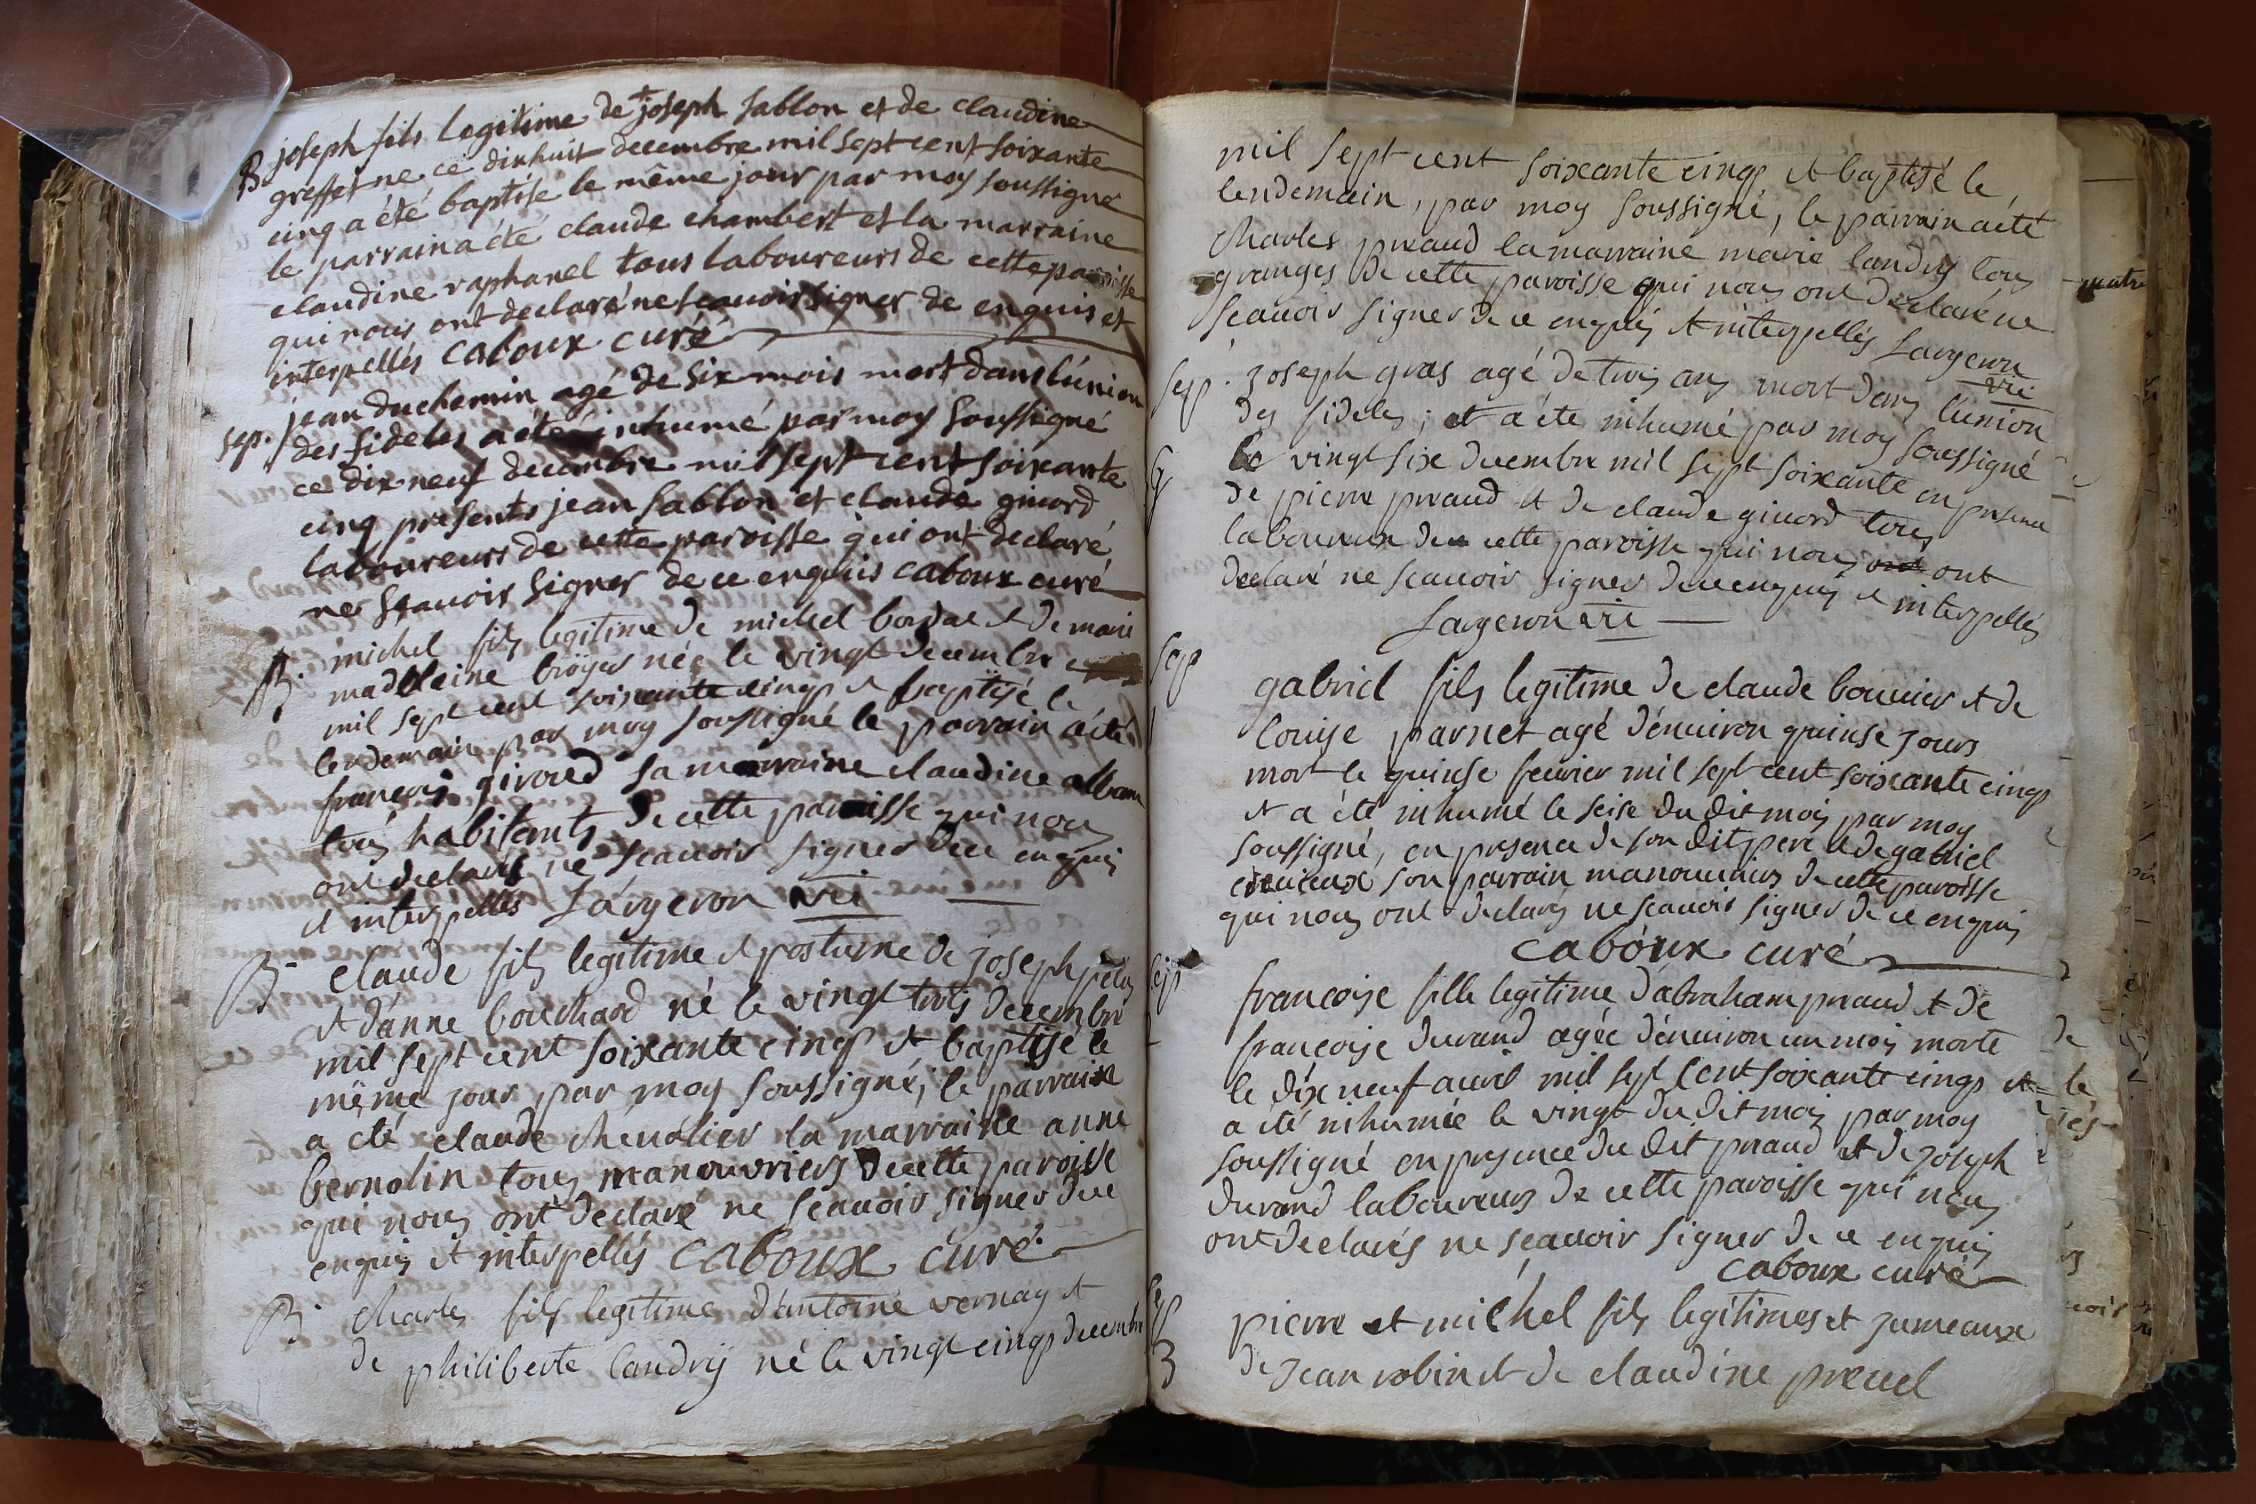 B. joseph fils legitime de joseph sablon et de claudine
greffet ne ce dixhuit decembre mil sept cent soixante
cinq a été baptisé le même jour par moy soussigné
le parrain a été claude chambert et la marraine
claudine raphanel tous laboureurs de cette paroisse
qui nous ont declaré ne scauoir signer de enquis et
interpellés caboux curé
sep. jean duchemin agé de six mois mort dans l'union
des fideles a été inhumé par moy soussigné
ce dix neuf decembre mil sept cent soixante
cinq presents jean sablon et claude giuord
laboureurs de cette paroisse qui ont declaré
ne scauoir signer de ce enquis caboux curé
B. michel fils legitime de michel bordat et de marie
madeleine broyer née le vingt decembre
mil sept cent soixante cinq et baptisé le
lendemain par moy soussigné le parrain a été
françois giroud sa marraine claudine alban
tous habitants de cette paroisse qui nous
ont declaré ne scauoir signer de ce enquis
et interpellés Largeron vic
B. claude fils legitime et postume de joseph
et d'anne bouchard né le vingt trois decembre
mil sept cent soixante cinq et baptisé le
même jour par moy soussigné, le parrain
a été claude cheualier la marraine anne
bernolin tous manouvriers de cette paroisse
qui nous ont declaré ne scauoir signer de ce
enquis et interpellés caboux curé
B. charles fils legitime d'antoine vernay et
de philiberte landry né le vingt cinq decembre
mil sept cent soixante cinq et baptisé le
lendemain, par moy soussigné, le parrain a été
charles preaud la marraine marie landry tous
granges de cette paroisse qui nous ont declaré ne
scauoir signer de ce enquis et interpellés Largeron
vic
sep. joseph gras agé de trois ans mort dans l'union
des fideles; et a été inhumé par moy soussigné
le vingt six decembre mil sept soixante en presence
de pierre preaud et de claude giuord tous
laboureux de cette paroisse qui nous ont ont
declaré ne scauoir signer de ce enquis et interpellés
Largeron vic
sep gabriel fils legitime de claude bouuier et de
louise parnet agé d'enuiron quinse jours
mort le quinse feurier mil sept cent soixante cinq
et a été inhumé le seise du dit mois par moy
soussigné, en presence de son dit pere et de gabriel
son parrain manouuriers de cette paroisse
qui nous ont declarés ne scauoir signer de ce enquis
caboux curé
sep françoise fille legitime d'abraham preaud et de
françoise durand agée d'enuiron un mois morte
le dix neuf auril mil sept cent soixante cinq et
a été inhumée le vingt du dit mois par moy
soussigné en presence du dit preaud et de joseph
durand laboureurs de cette paroisse qui nous
ont declarés ne scauoir signer de ce enquis
caboux curé
sep pierre et michel fils legitimes et jumeaux
3 de jean robin et de claudine preuel